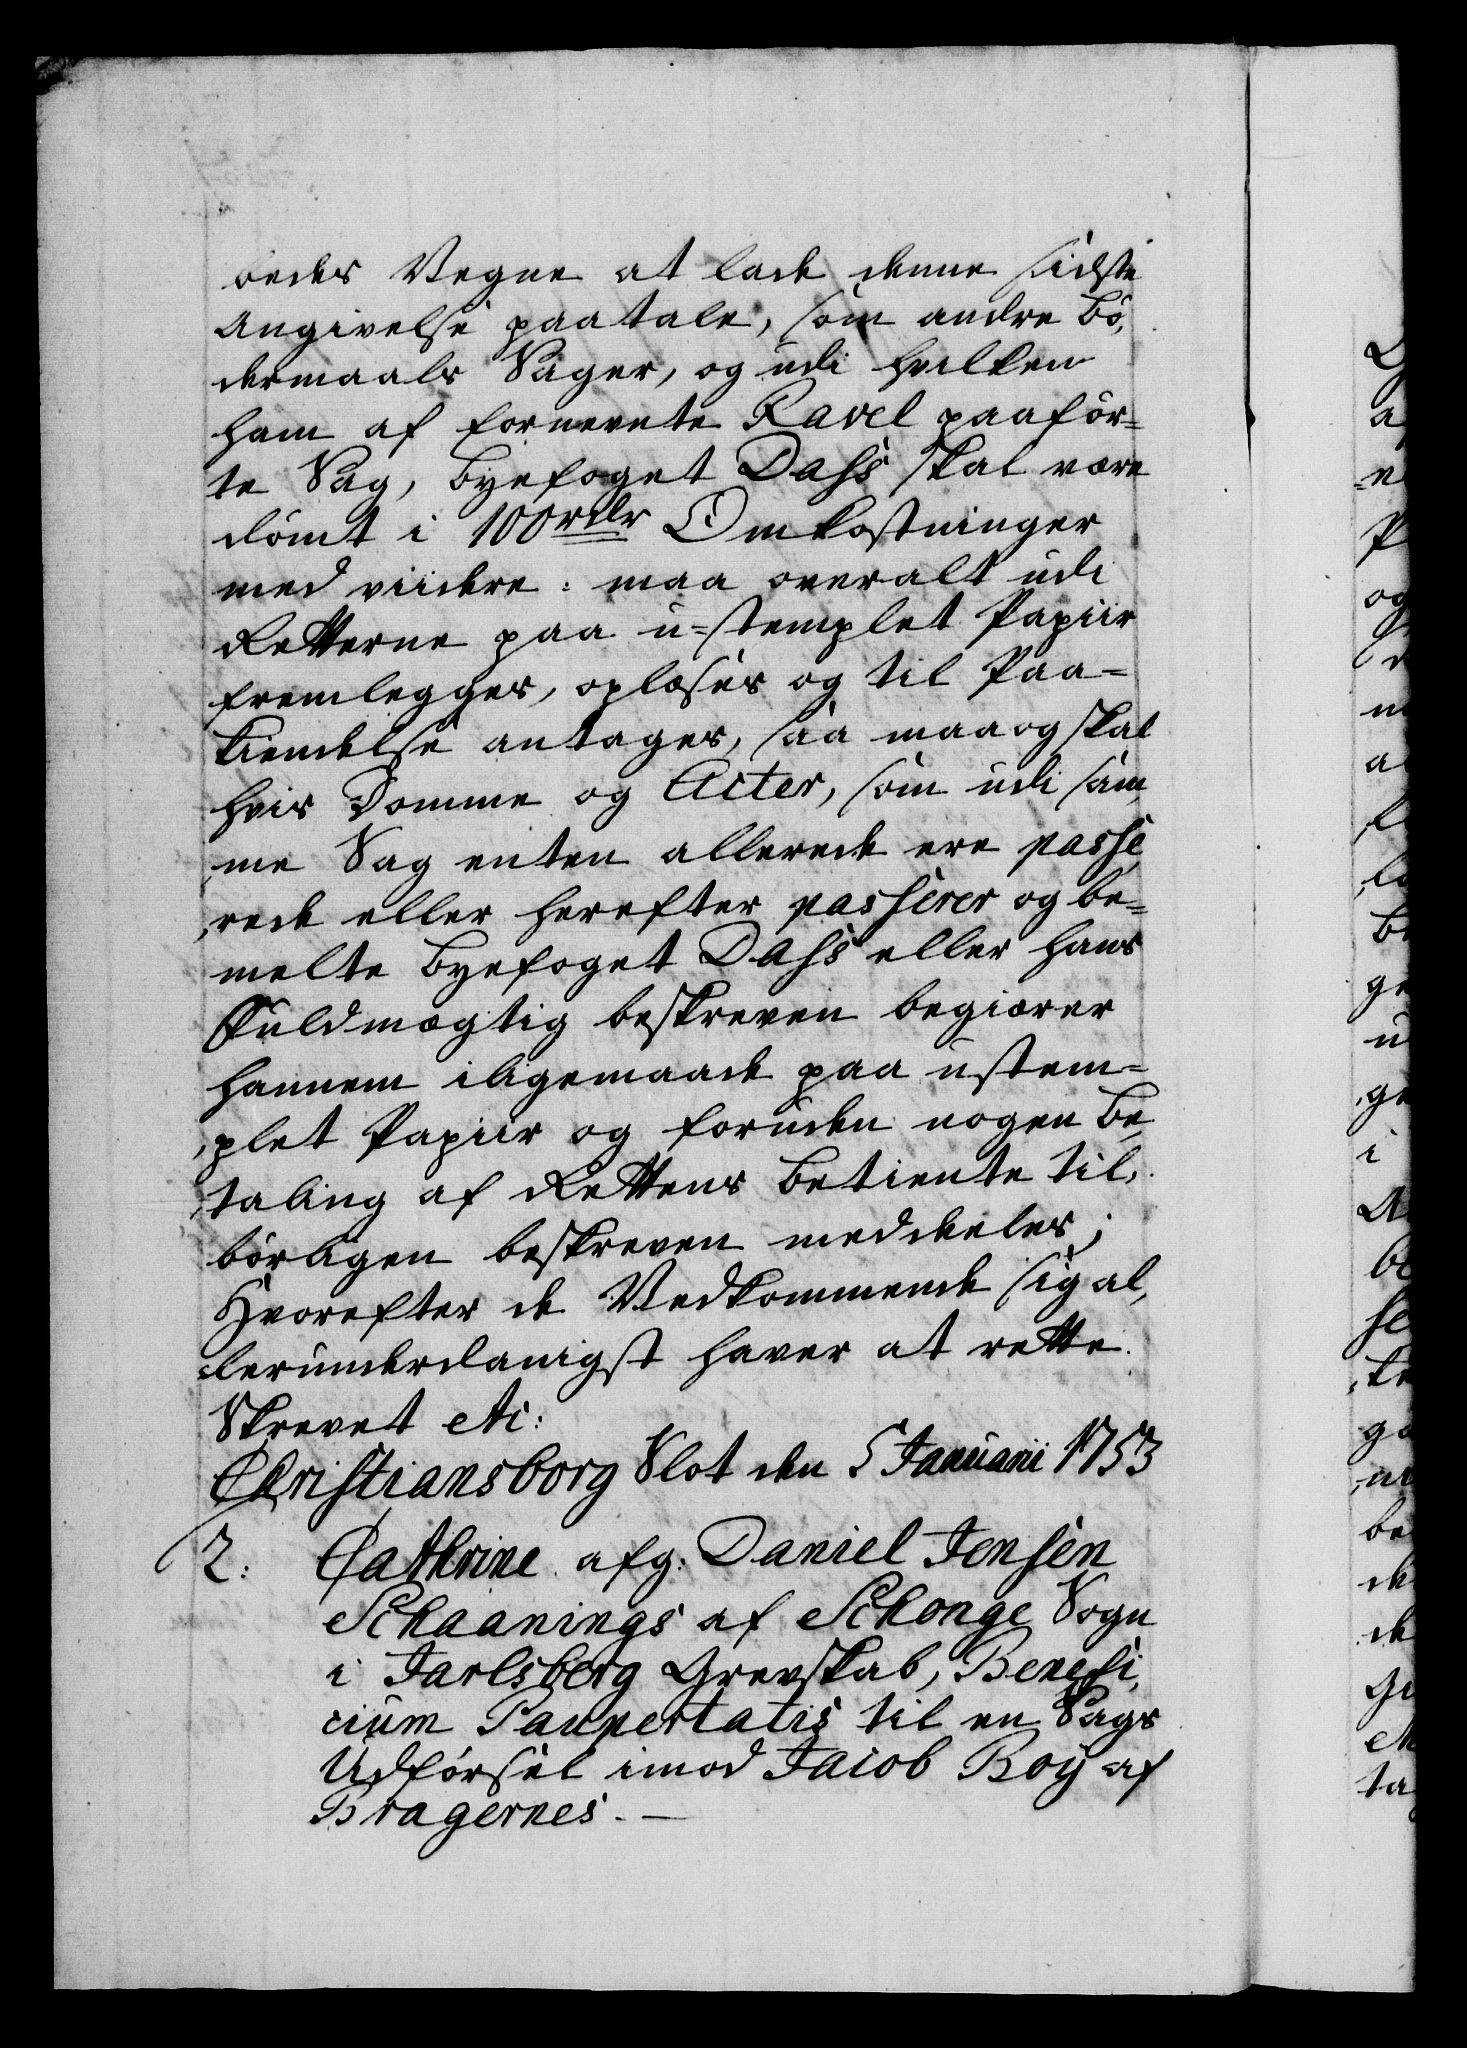 bedes Vegne at lade denne sidste
Angivelse paatale, som andre Bö,
dermaals Sager, og udi hvilken
ham af fornevnte Ravel paaför=
te Sag, Byefoget Dass skal være
dömt i 100 rdlr Omkostninger
med viidere: maa overalt udi
Retterne paa u=stemplet Papiir
fremlegges, oplæses og til Paa=
kiendelse antages, saa maa og skal
hvis Domme og Acter, som udi sam,
me Sag enten allerede ere passe,
rede eller herefter passerer og be=
melte Byefoget Dass eller hans
Fuldmægtig beskreven begiærer
hannem iligemaade paa ustem=
plet Papiir og foruden nogen Be,
taling af Rettens Betiente til,
börligen beskreven meddeeles;
Hvorefter de Vedkommende sig al,
lerunderdanigst haver at rette.
Skrevet etc:
Christiansborg Slot den 5 Januarii 1753
2: Cathrine afg: Daniel Jensen
Schaanings af Schonge Sogn
i Jarlsberg Grevskab, Benefi,
cium Paupertatis til en Sags
Udförsel imod Jacob Boy af
Bragernes. —